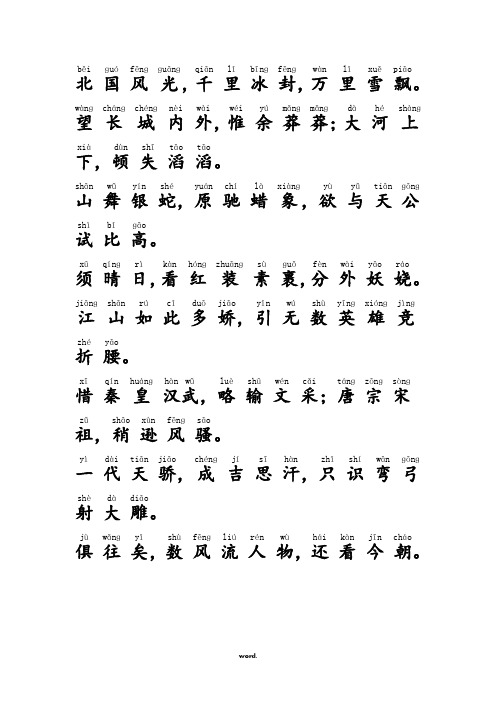 běi guó fēng guāng qiān lǐ bīng fēng wàn lǐ xuě piāo
北国风光,千里冰封,万里雪飘。
wàng cháng chéng nèi wài wéi yú mǎng mǎng dà hé shàng
望长城内外,惟余莽莽;大河上
xià dùn shī tāo tāo
下,顿失滔滔。
shān wǔ yín shé yuán chí là xiàng yù yǔ tiān gōng
山舞银蛇,原驰蜡象,欲与天公
shì bǐ gāo
试比高。
xū qíng rì kàn hóng zhuāng sù guǒ fèn wài yāo ráo
须晴日,看红装素裹,分外妖娆。
jiāng shān rú cǐ duō jiāo yǐn wú shù yīng xióng jìng
江山如此多娇,引无数英雄竞
zhé yāo
折腰。
xī qín huáng hàn wǔ lüè shū wén cǎi táng zōng sòng
惜秦皇汉武,略输文采;唐宗宋
zǔ shāo xùn fēng sāo
祖,稍逊风骚。
yí dài tiān jiāo chéng jí sī hán zhǐ shí wān gōng
一代天骄,成吉思汗,只识弯弓
shè dà diāo
射大雕。
jù wǎng yǐ shǔ fēng liú rén wù hái kàn jīn zhāo
俱往矣,数风流人物,还看今朝。
word.